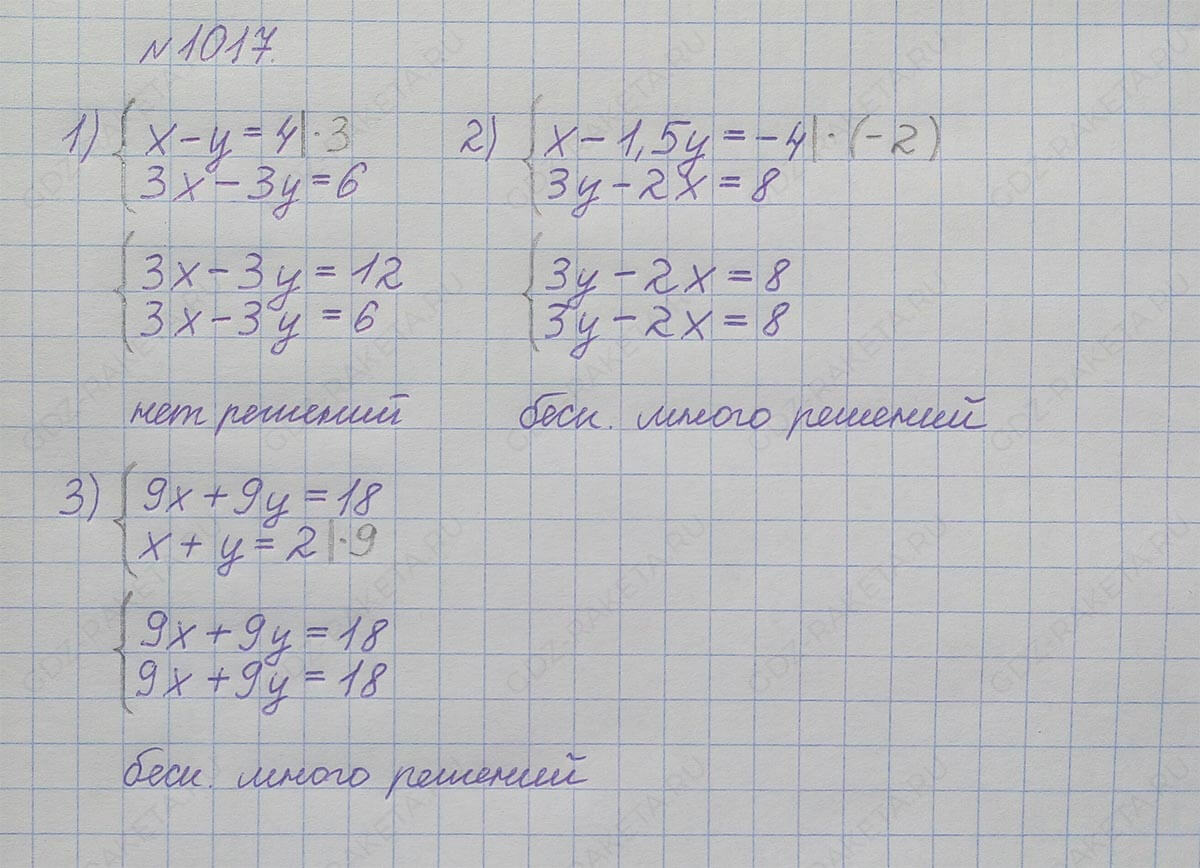 №1017.
1) { x - y = 4 | · 3
3x - 3y = 6
{ 3x - 3y = 12
3x - 3y = 6
нет решений
2) { x - 1,5y = -4 | · (-2)
3y - 2x = 8
{ 3y - 2x = 8
3y - 2x = 8
беск. много решений
3) { 9x + 9y = 18
x + y = 2 | · 9
{ 9x + 9y = 18
9x + 9y = 18
беск. много решений
GDZ-RAKETA.RU